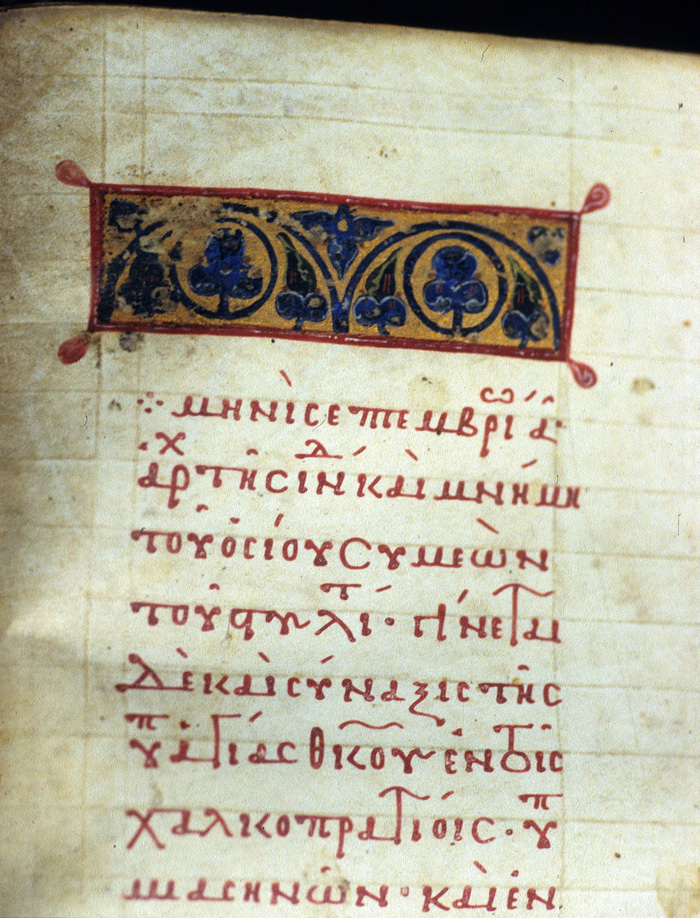 μηνὶ σεπτεμβρίω ά·
ἀρχ τῆς ἰνδ καὶ μνήμη
τοῦ ὁσίου Συμεὼν
τοῦ στυλίτ· γίνεται
δὲ καὶ σύναξις τῆς
ὑπ ἁγίας θκου ἐν τοῖς
χαλκοπρατίοις· ὑπ
μασηνῶν· καὶ ἐν